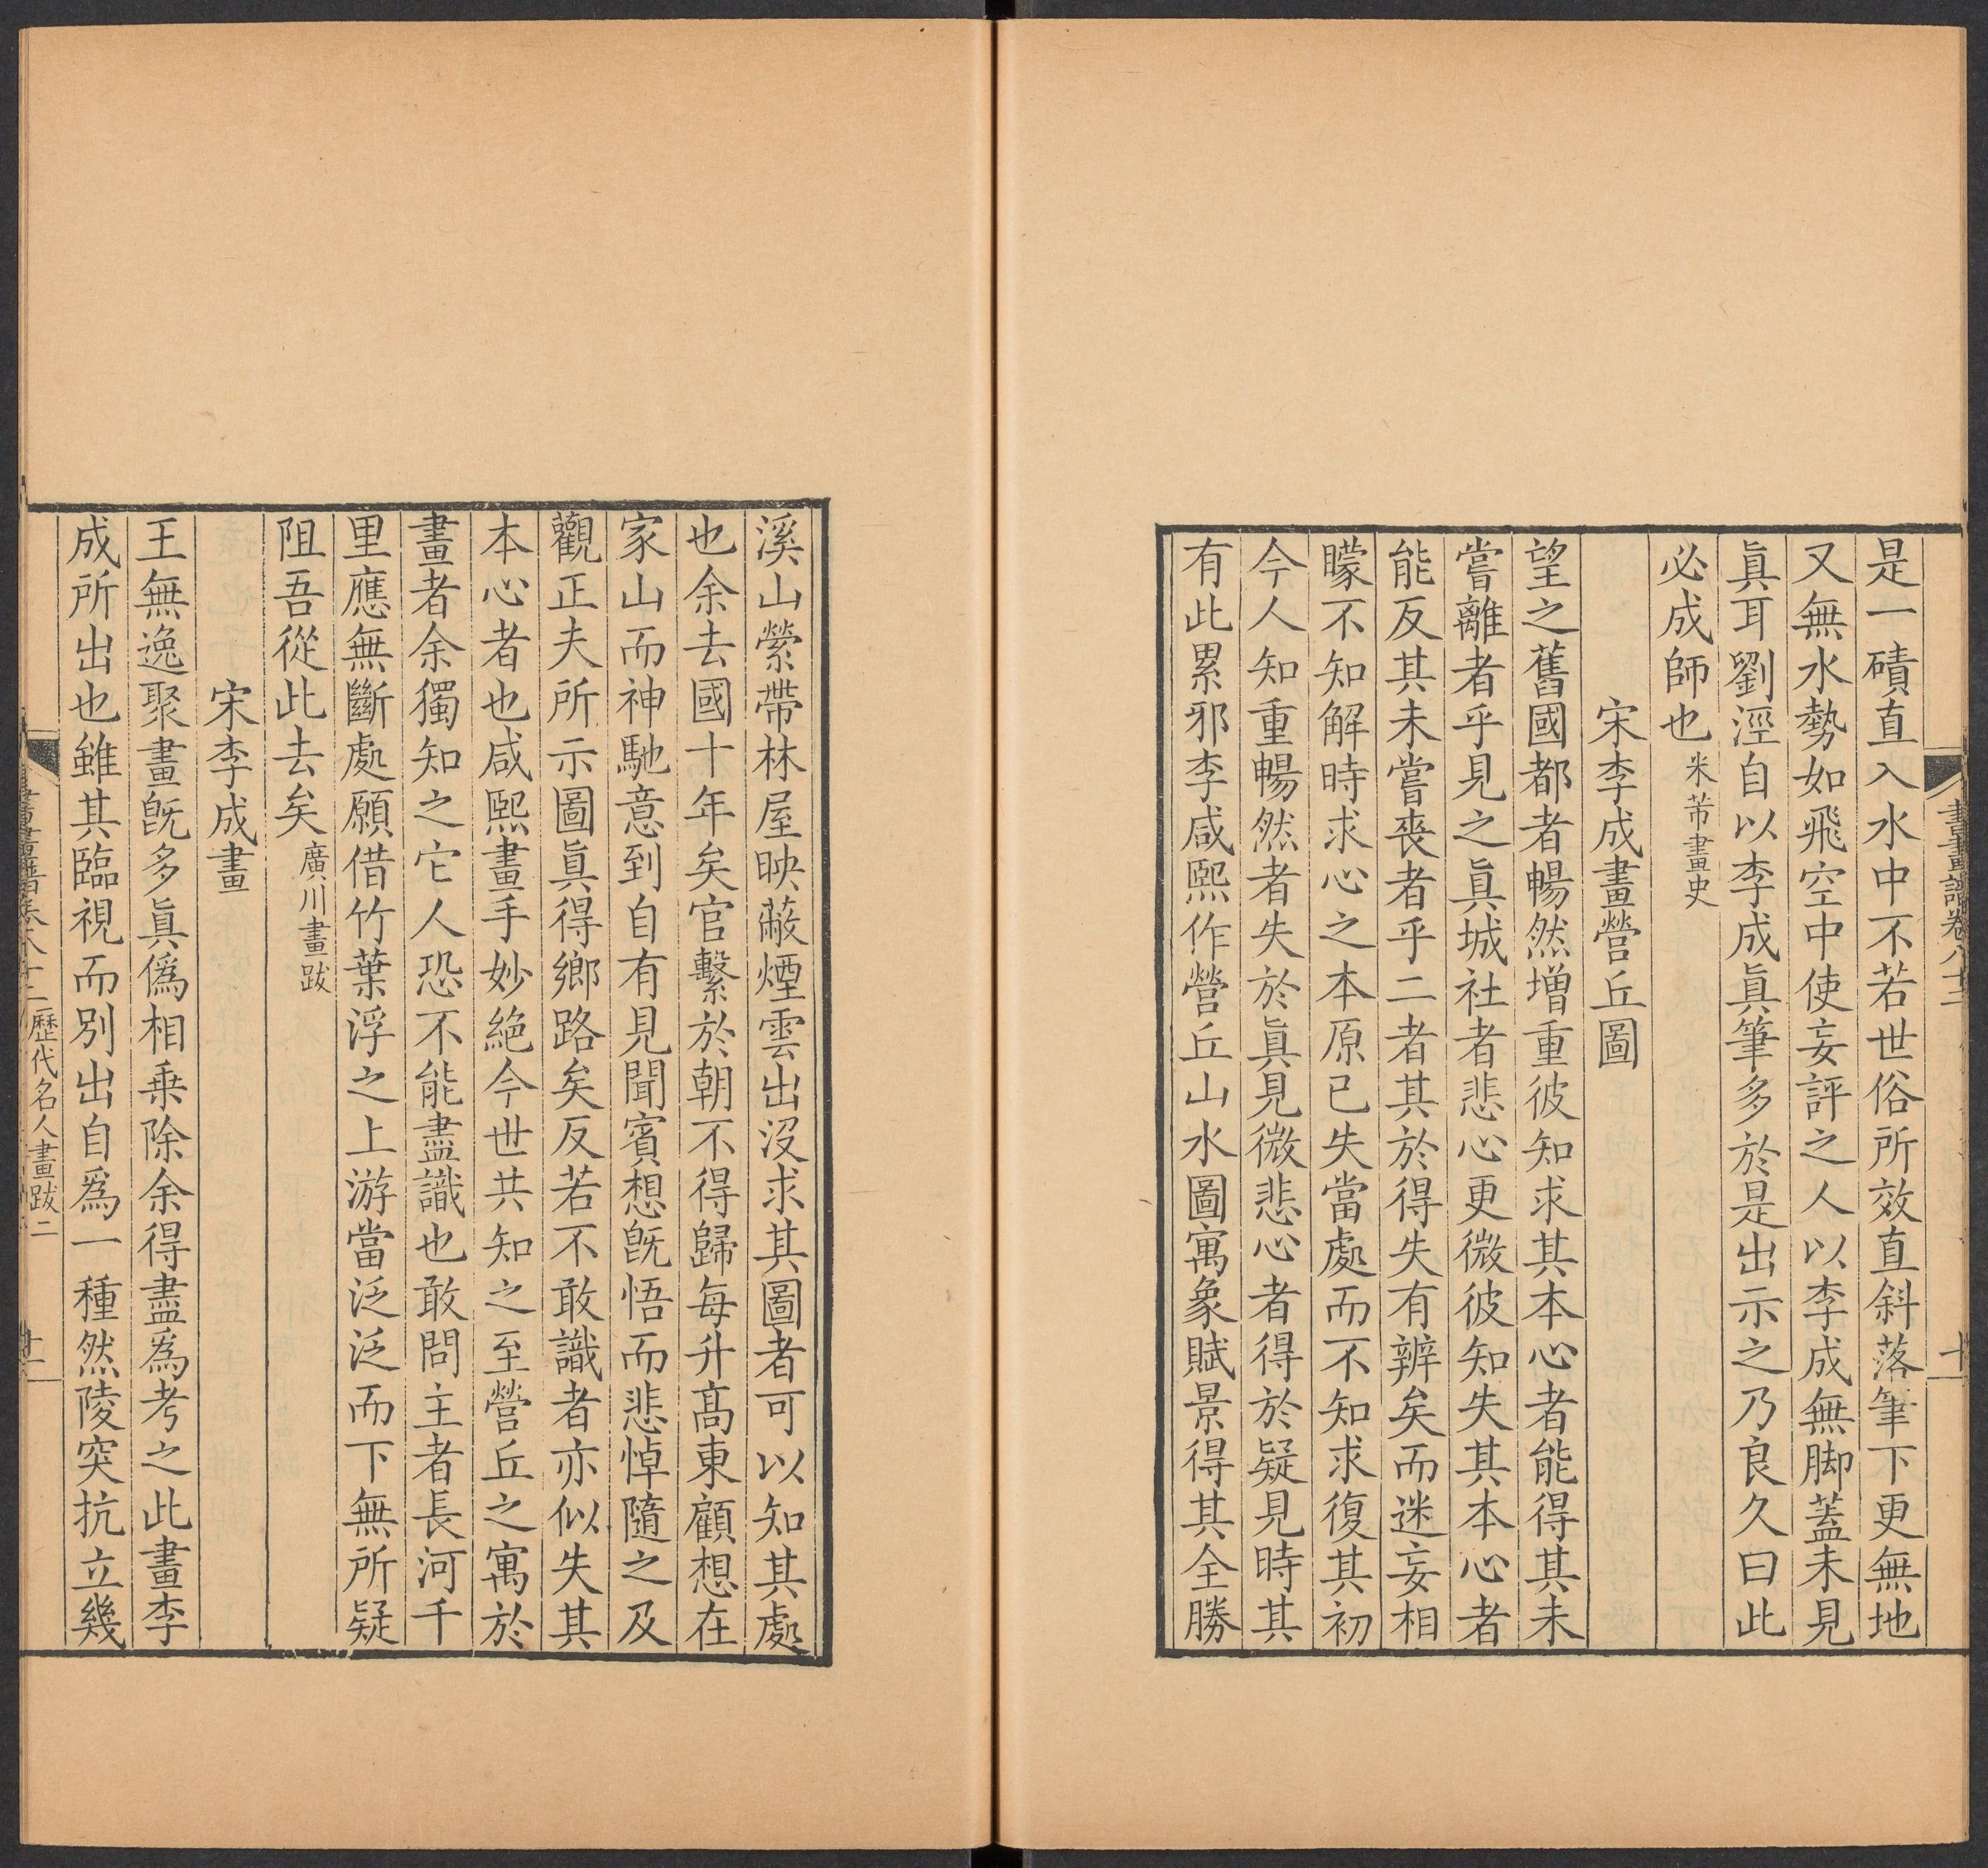 書畫譜卷八十二 十一
是一磧直入水中不若世俗所效直斜落筆下更無地
又無水勢如飛空中使妄評之人以李成無脚蓋未見
眞耳劉涇自以李成眞筆多於是出示之乃良久曰此
必成師也 米芾畫史
宋李成畫營丘圖
望之舊國都者暢然增重彼知求其本心者能得其未
嘗離者乎見之眞城社者悲心更微彼知失其本心者
能反其未嘗喪者乎二者其於得失有辨矣而迷妄相
矇不知解時求心之本原已失當處而不知求復其初
今人知重暢然者失於眞見微悲心者得於疑見時其
有此累邪李咸熙作營丘山水圖寓象賦景得其全勝
溪山縈帶林屋映蔽煙雲出沒求其圖者可以知其處
也余去國十年矣官繫於朝不得歸每升高東顧想在
家山而神馳意到自有見聞賓想旣悟而悲悼隨之及
觀正夫所示圖眞得鄉路矣反若不敢識者亦似失其
本心者也咸熙畫手妙絶今世共知之至營丘之寓於
畫者余獨知之它人恐不能盡識也敢問主者長河千
里應無斷處願借竹葉浮之上游當泛泛而下無所疑
阻吾從此去矣 廣川畫跋
宋李成畫
王無逸聚畫旣多眞僞相乗除余得盡爲考之此畫李
成所出也雖其臨視而別出自爲一種然陵突抗立幾
歷代名人畫跋二